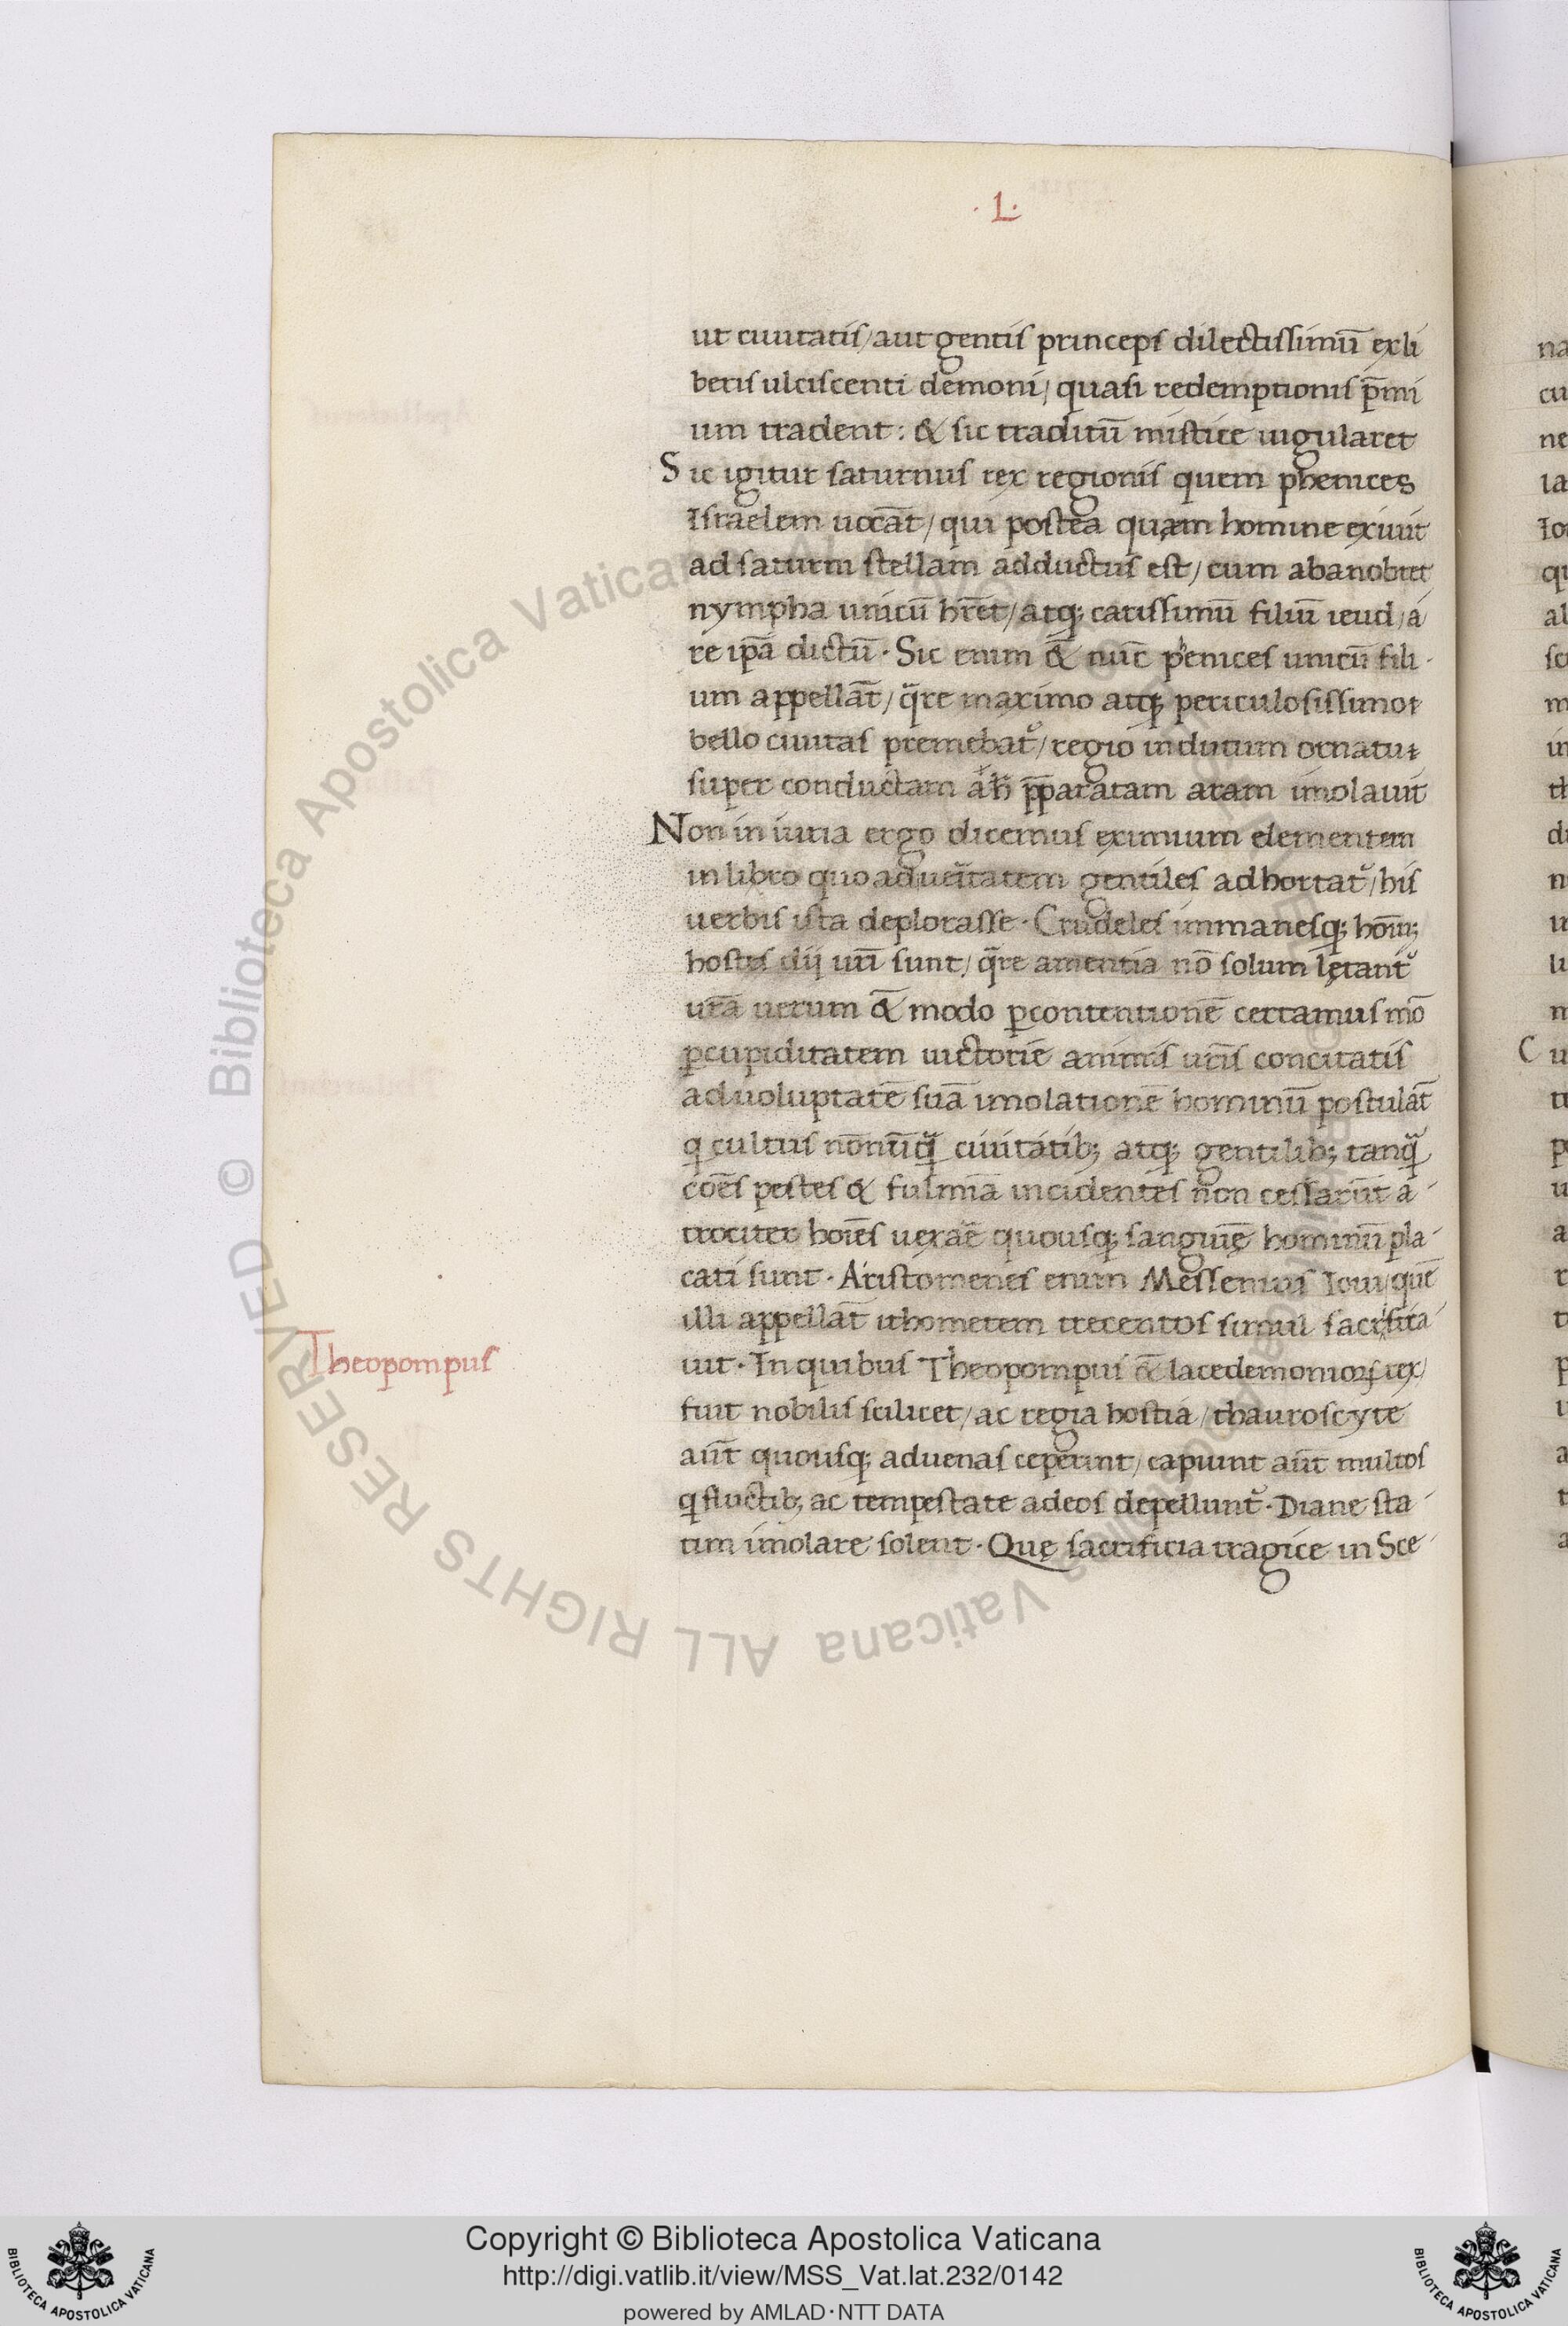 · L ·
ut ciuitatis / aut gentis princeps dilectissimū ex li
beris ulciscenti demoni / quasi redemptionis p̄mi
um tradent : & sic traditū mistice iugularet
Sic igitur saturnus rex regionis quem phenices
Israelem uocāt / qui postea quam homine exiuit
ad saturni stellam adductus est / cum abanobret
nympha unicū hr̄et / atq; carissimū filiū ieud / á
re ip̄a dictū · Sic enim & nūc phenices unicū fili-
um appellāt / q̄re maximo atq; periculosissimo
bello ciuitas premebat᷑ / regio indutum ornatu
super conductam p̄paratam aram imolauit
Non in iuria ergo dicemus eximium clementem
in libro quo ad ueritatem gentiles adhortat᷑ / his
uerbis ista deplorasse · Crudeles immanesq; hoīm;
hostes dij uri̅ sunt / q̄re amentia nō solum lętant᷑
urā uerum & modo ꝑ contentionē certamus mō
ꝑ cupiditatem uictorie animis uris̅ concitatis
ad uoluptatē suā imolationē hominū postulāt
q cultus nonūq̄ ciuitatib; atq; gentilib; tanq̄
coēs pestes & fulmina incidentes non cessarūt a-
trociter hoīes uexare quousq; sanguinę hominū pla-
cati sunt · Aristomenes enim Messenius Ioui / quē
illi appellāt ithometem trecentos simul sacrifica-
uit · In quibus Theopompus & lacedemoniorꝝ rex /
fuit nobilis scilicet / ac regia hostia / thauroscyte
aūt quousq; aduenas ceperint / capiunt aūt multos
q fluctib; ac tempestate ad eos depellunt᷑ · Diane sta-
tim imolare solent · Quę sacrificia tragice in Sce-
Theopompus
© Biblioteca Apostolica Vaticana ALL RIGHTS RESERVED
Copyright © Biblioteca Apostolica Vaticana
http://digi.vatlib.it/view/MSS_Vat.lat.232/0142
powered by AMLAD·NTT DATA
BIBLIOTECA APOSTOLICA VATICANA
BIBLIOTECA APOSTOLICA VATICANA